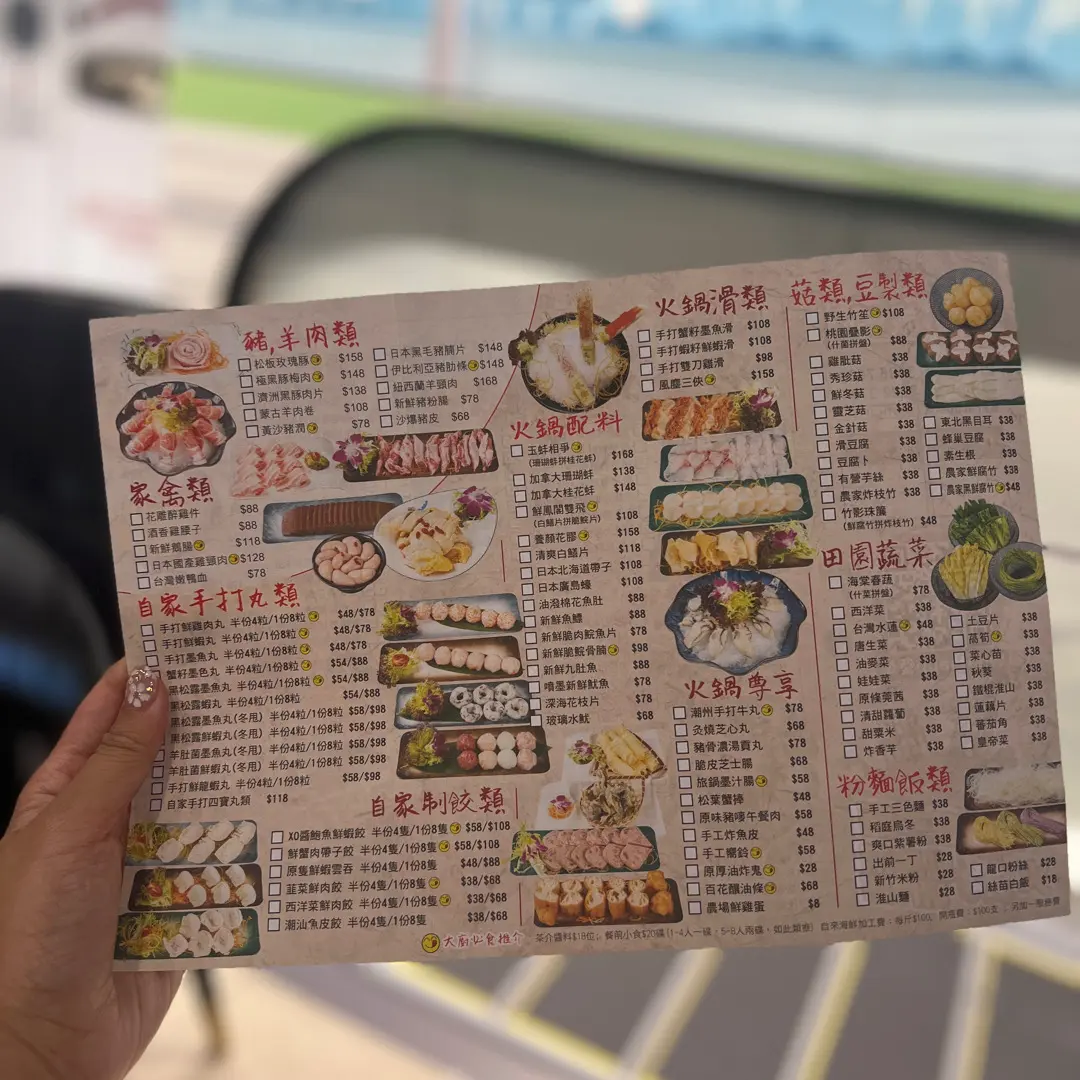 豬,羊肉類
松板玫瑰豚 $158
極黑豚梅肉 $148
濟洲黑豚肉片 $138
蒙古羊肉卷 $108
黃沙豬潤 $78
日本黑毛豬腩片 $148
伊比利亞豬肋條 $148
紐西蘭羊頸肉 $168
新鮮豬粉腸 $78
沙爆豬皮 $68
家禽類
花雕醉雞件 $88
酒香雞腰子 $88
新鮮鵝腸 $118
日本國產雞頸肉 $128
台灣嫩鴨血 $78
自家手打丸類
手打鮮雞肉丸 半份4粒/1份8粒 $48/$78
手打鮮蝦丸 半份4粒/1份8粒 $48/$78
手打墨魚丸 半份4粒/1份8粒 $48/$78
蟹籽墨色丸 半份4粒/1份8粒 $54/$88
黑松露墨魚丸 半份4粒/1份8粒 $54/$88
黑松露蝦丸 半份4粒/1份8粒 $54/$88
黑松露墨魚丸(冬甩) 半份4粒/1份8粒 $58/$98
黑松露鮮蝦丸(冬甩) 半份4粒/1份8粒 $58/$98
羊肚菌墨魚丸(冬甩) 半份4粒/1份8粒 $58/$98
羊肚菌鮮蝦丸(冬甩) 半份4粒/1份8粒 $58/$98
手打鮮龍蝦丸 半份4粒/1份8粒 $58/$98
自家手打四寶丸類 $118
自家制餃類
XO醬鮑魚鮮蝦餃 半份4隻/1份8隻 $58/$108
鮮蟹肉帶子餃 半份4隻/1份8隻 $58/$108
原隻鮮蝦雲吞 半份4隻/1份8隻 $48/$88
韮菜鮮肉餃 半份4隻/1份8隻 $38/$68
西洋菜鮮肉餃 半份4隻/1份8隻 $38/$68
潮汕魚皮餃 半份4隻/1份8隻 $38/$68
火鍋配料
玉蚌相爭 $168
(珊瑚蚌拼桂花蚌)
加拿大珊瑚蚌 $138
加拿大桂花蚌 $148
鮮鳳閣雙飛
(白鱔片拼脆鯇片) $108
養顏花膠 $158
清爽白鱔片 $118
日本北海道帶子 $108
日本廣島蠔 $108
油潑棉花魚肚 $88
新鮮魚鰾 $88
新鮮脆肉鯇魚片 $78
新鮮脆鯇骨腩 $98
新鮮九肚魚 $88
噴墨新鮮魷魚 $78
深海花枝片 $78
玻璃水魷 $68
火鍋滑類
手打蟹籽墨魚滑 $108
手打蝦籽鮮蝦滑 $108
手打雙刀雞滑 $98
風塵三俠 $158
火鍋尊享
潮州手打牛丸 $78
灸燒芝心丸 $68
豬骨濃湯貢丸 $78
脆皮芝士腸 $68
旅鍋墨汁腸 $58
松葉蟹捧 $48
原味豬嘜午餐肉 $58
手工炸魚皮 $48
手工響鈴 $58
原厚油炸鬼 $28
百花釀油條 $68
農場鮮雞蛋 $8
菇類,豆製類
野生竹笙 $108
桃園疊影 $88
(什菌拼盤)
雞肶菇 $38
秀珍菇 $38
鮮冬菇 $38
靈芝菇 $38
金針菇 $38
滑豆腐 $38
豆腐卜 $38
有營芋絲 $38
農家炸枝竹 $38
竹影珠簾
(鮮腐竹拼炸枝竹) $48
東北黑目耳 $38
蜂巢豆腐 $38
素生根 $38
農家鮮腐竹 $38
農家黑鮮腐竹 $48
田園蔬菜
海棠春蔬
(什菜拼盤) $78
西洋菜 $38
台灣水蓮 $48
唐生菜 $38
油麥菜 $38
娃娃菜 $38
原條萵茜 $38
清甜蘿蔔 $38
甜粟米 $38
炸香芋 $38
土豆片 $38
萵筍 $38
菜心苗 $38
秋葵 $38
鐵棍淮山 $38
蓮藕片 $38
蕃茄角 $38
皇帝菜 $38
粉麵飯類
手工三色麵 $38
稻庭烏冬 $38
爽口紫薯粉 $38
出前一丁 $28
新竹米粉 $28
淮山麵 $28
龍口粉絲 $28
絲苗白飯 $18
大廚必食推介
茶介醬料$18位; 餐前小食$20碟(1-4人一碟, 5-8人兩碟, 如此類推)